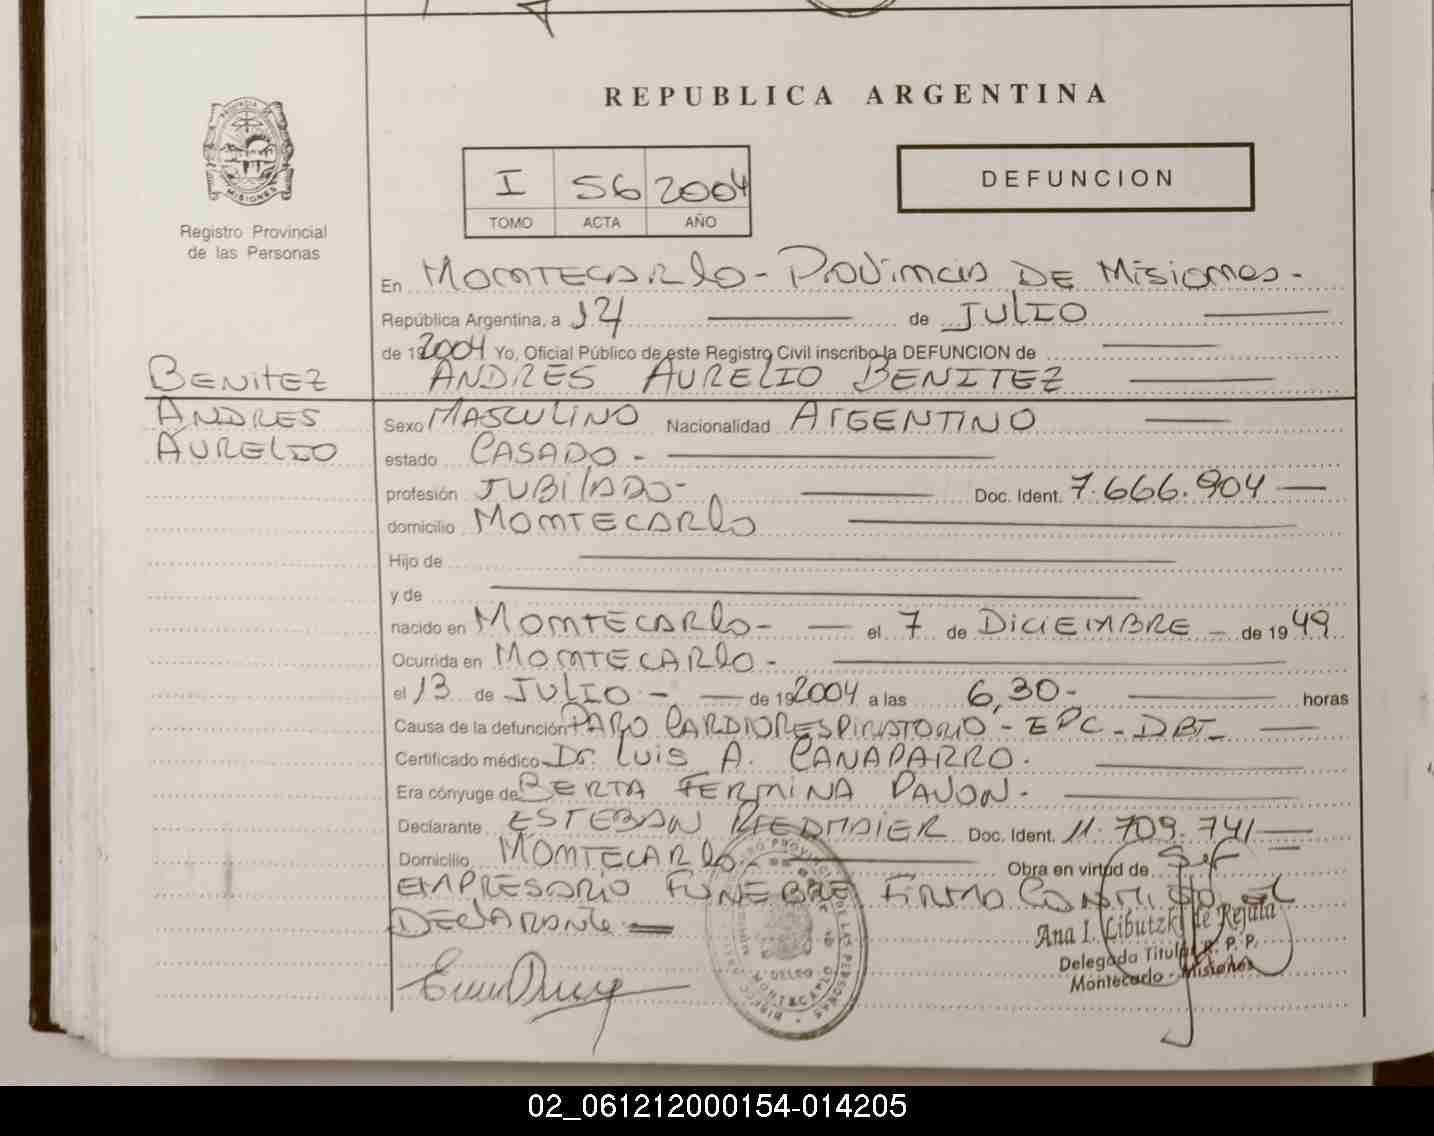 REPUBLICA ARGENTINA
MISIONES
Registro Provincial
de las Personas
I 56 2004
TOMO ACTA AÑO
DEFUNCION
En MONTECARLO - PROVINCIA DE MISIONES -
República Argentina, a 14 de JULIO
de 192004 Yo, Oficial Público de este Registro Civil inscribo la DEFUNCION de
ANDRES AURELIO BENITEZ
BENITEZ
ANDRES
AURELIO
Sexo MASCULINO Nacionalidad ARGENTINO
estado CASADO -
profesión JUBILADO - Doc. Ident. 7.666.904
domicilio MONTECARLO
Hijo de
y de
nacido en MONTECARLO - el 7 de DICIEMBRE - de 19 49
Ocurrida en MONTECARLO -
el 13 de JULIO - de 192004 a las 6,30 - horas
Causa de la defunción PARO CARDIORESPIRATORIO - EPC - DBT -
Certificado médico Dr. LUIS A. CANAPARRO.
Era cónyuge de BERTA FERMINA PAVON -
Declarante ESTEBAN RIEDMAIER Doc. Ident. 11.709.741
Domicilio MONTECARLO - Obra en virtud de ser
EMPRESARIO FUNEBRE FIRMA CONMIGO EL
DECLARANTE
Ana I. Libutzki de Rejala
Delegada Titular R. P. P.
Montecarlo - Misiones
MONTECARLO
02_061212000154-014205